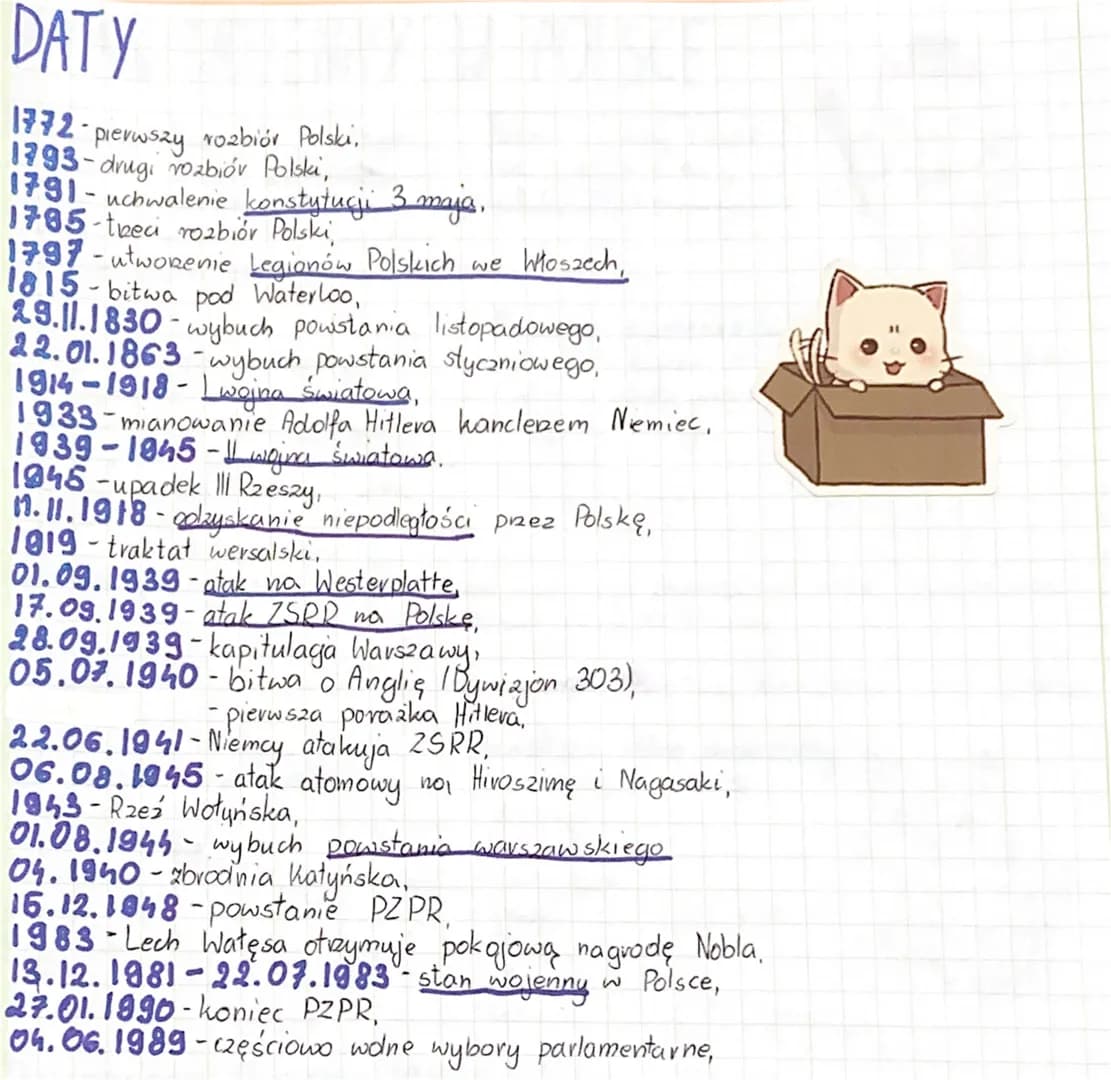 DATY
1772 - pierwszy rozbiór Polski,
1793 - drugi rozbiór Polski,
1791 - uchwalenie konstytucji 3 maja,
1795 - trzeci rozbiór Polski,
1797 - utworzenie Legionów Polskich we Włoszech,
1815 - bitwa pod Waterloo,
29.11.1830 - wybuch powstania listopadowego,
22.01.1863 - wybuch powstania styczniowego,
1914 - 1918 - I wojna światowa,
1933 - mianowanie Adolfa Hitlera kanclerzem Niemiec,
1939 - 1945 - II wojna światowa,
1945 - upadek III Rzeszy,
11.11.1918 - odzyskanie niepodległości przez Polskę,
1919 - traktat wersalski,
01.09.1939 - atak na Westerplatte,
17.09.1939 - atak ZSRR na Polskę,
28.09.1939 - kapitulacja Warszawy,
05.07.1940 - bitwa o Anglię (Dywizjon 303),
- pierwsza porażka Hitlera,
22.06.1941 - Niemcy atakują ZSRR,
06.08.1945 - atak atomowy na Hiroszimę i Nagasaki,
1943 - Rzeź Wołyńska,
01.08.1944 - wybuch powstania warszawskiego
04.1940 - zbrodnia Katyńska,
15.12.1948 - powstanie PZPR,
1983 - Lech Wałęsa otrzymuje pokojową nagrodę Nobla,
13.12.1981 - 22.07.1983 - stan wojenny w Polsce,
27.01.1990 - koniec PZPR,
04.06.1989 - częściowo wolne wybory parlamentarne,